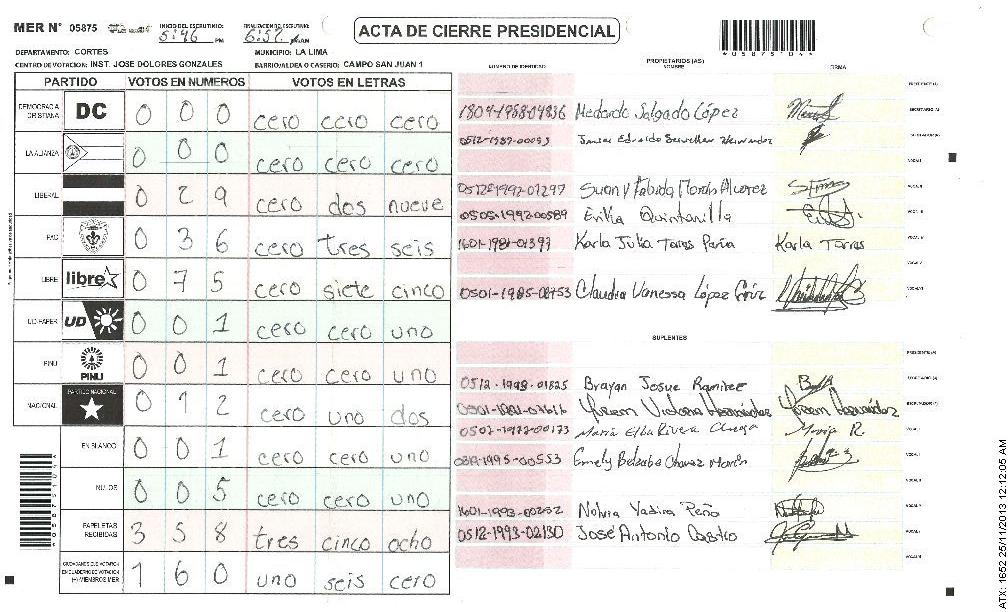 MER N° 05875 INICIO DEL ESCRUTINIO: 5:46 PM FINALIZACION DE ESCRUTINIO: 6:52 AM
ACTA DE CIERRE PRESIDENCIAL
*05875104*
DEPARTAMENTO: CORTES MUNICIPIO: LA LIMA
CENTRO DE VOTACION: INST. JOSE DOLORES GONZALES BARRIO/ALDEA O CASERIO: CAMPO SAN JUAN 1
PARTIDO VOTOS EN NUMEROS VOTOS EN LETRAS
DEMOCRACIA CRISTIANA DC 0 0 0 cero cero cero
LA ALIANZA 0 0 0 cero cero cero
LIBERAL 0 2 9 cero dos nueve
PAC 0 3 6 cero tres seis
LIBRE libre 0 7 5 cero siete cinco
UD-FAPER UD 0 0 1 cero cero uno
PINU PINU 0 0 1 cero cero uno
NACIONAL PARTIDO NACIONAL 0 1 2 cero uno dos
EN BLANCO 0 0 1 cero cero uno
NULOS 0 0 5 cero cero uno
PAPELETAS RECIBIDAS 3 5 8 tres cinco ocho
CIUDADANOS QUE VOTARON EN CUADERNO DE VOTACION (+) MIEMBROS MER 1 6 0 uno seis cero
NUMERO DE IDENTIDAD PROPIETARIOS (AS) NOMBRE FIRMA
PRESIDENTE (A)
1804-1968-04836 Medardo Salgado López SECRETARIO (A)
0512-1987-00053 Eduardo ESCRUTADOR (A)
VOCAL I
0512-1992-01297 Suany Fabiola Morán Álvarez VOCAL II
0505-1992-00589 Erika Quintanilla VOCAL III
1601-1981-01397 Karla Julia Torres Karla Torres VOCAL IV
VOCAL V
0501-1985-08753 Claudia Vanessa López Cruz VOCAL VI
SUPLENTES
PRESIDENTE (A)
0512-1993-01825 Brayan Josue Ramirez SECRETARIO (A)
Victoria Hernández Hernández ESCRUTADOR (A)
0502-1972-00173 María Elba Rivera María R. VOCAL I
1995-00553 Emely Chavez VOCAL II
VOCAL III
1601-1993-00252 Nolvia Yadira Peña VOCAL IV
0512-1993-02130 José Antonio Castro VOCAL V
VOCAL VI
ATX: 1652 25/11/2013 12:12:05 AM